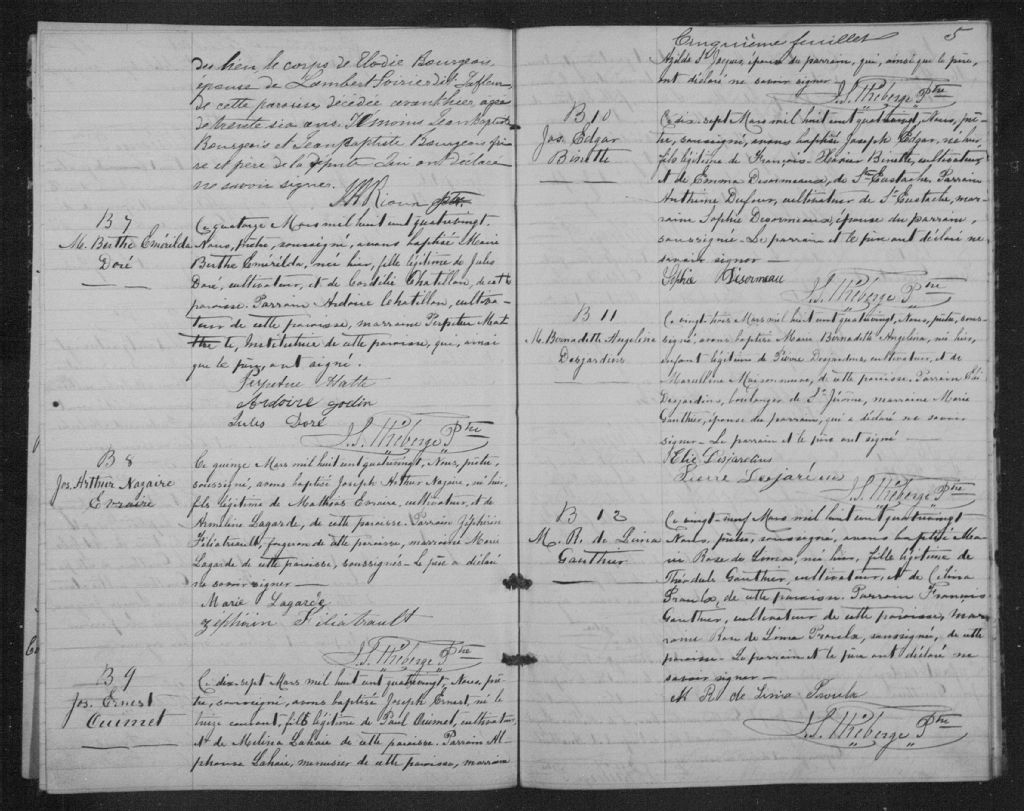 du lieu, le corps de Elodie Bourgeois,
épouse de Lambert Poirier dit Lafleur
de cette paroisse, décédée avant hier, agée
de trente six ans. Témoins Jean Baptiste
Bourgeois et Jean Baptiste Bourgeois frè
re et père de la défunte qui ont déclaré
ne savoir signer.
Ptre
B 7
M. Berthe Emérilda
Doré
Ce quatorze Mars mil huit cent quatrevingt.
Nous, prêtre, soussigné, avons baptisé Marie
Berthe Emérilda, née hier, fille légitime de Jules
Doré, cultivateur, et de Cordélie Chatillon, de cette
paroisse. Parrain Ardoire Chatillon, cultiva-
teur de cette paroisse, marraine Perpetue
te, Institutrice de cette paroisse, qui, ainsi
que le père, ont signé.
Perpetue
Ardoire godin
Jules Doré
J. S. Théberge Ptre
B 8
Jos. Arthur Nazaire
Evraire
Ce quinze Mars mil huit cent quatrevingt, Nous, prêtre,
soussigné, avons baptisé Joseph Arthur Nazaire, né hier,
fils légitime de Mathias Evraire, cultivateur, et de
Armeline Lagarde, de cette paroisse. Parrain Zéphirin
Filiatreault, forgeron de cette paroisse, marraine Marie
Lagarde de cette paroisse, soussignés. Le père a déclaré
ne savoir signer —
Marie Lagarde
Zéphirin Filiatrault
J. S. Théberge Ptre
B 9
Jos. Ernest
Ouimet
Ce dix-sept Mars mil huit cent quatrevingt, Nous, prê-
tre, soussigné, avons baptisé Joseph Ernest, né le
treize courant, fils légitime de Paul Ouimet, cultivateur,
et de Melina Lahaie de cette paroisse. Parrain Al-
phonse Lahaie, menuisier de cette paroisse, marraine
Cinquième feuillet 5
épouse du parrain, qui, ainsi que le père,
ont déclaré ne savoir signer —
J. S. Théberge Ptre
B 10
Jos. Edgar
Binette
Ce dix-sept Mars mil huit cent quatrevingt, Nous, prê-
tre, soussigné, avons baptisé Joseph Edgar, né hier,
fils légitime de François-Xavier Binette, cultivateur
et de Emma Desormeaux, de St Eustache. Parrain
Anthime Dufour, cultivateur de St Eustache, mar-
raine Sophie Desormeaux, épouse du parrain,
soussignée. Le parrain et le père ont déclaré ne
savoir signer —
Sophie Desormeau
J. S. Théberge Ptre
B 11
M. Bernadette Angelina
Desjardins
Ce vingt-trois Mars mil huit cent quatrevingt, Nous, prêtre, sous-
signé, avons baptisé Marie Bernadette Angelina, née hier,
enfant légitime de Pierre Desjardins, cultivateur, et de
Marcelline Maisonneuve, de cette paroisse. Parrain Elie
Desjardins, boulanger de St Jérôme, marraine Marie
Gauthier, épouse du parrain, qui a déclaré ne savoir
signer — Le parrain et le père ont signé
Elie Desjardins
Pierre Desjardins
J. S. Théberge Ptre
B 12
M. R. de Lima
Gauthier
Ce vingt-neuf Mars mil huit cent quatrevingt
Nous, prêtre, soussigné, avons baptisé Ma-
rie Rose de Lima, née hier, fille légitime de
Théodule Gauthier, cultivateur, et de Célina
de cette paroisse. Parrain François
Gauthier, cultivateur de cette paroisse, mar-
raine Rose de Lima Proulx, soussignée, de cette
paroisse — Le parrain et le père ont déclaré ne
savoir signer —
M R de Lima Proulx
J. S. Théberge Ptre